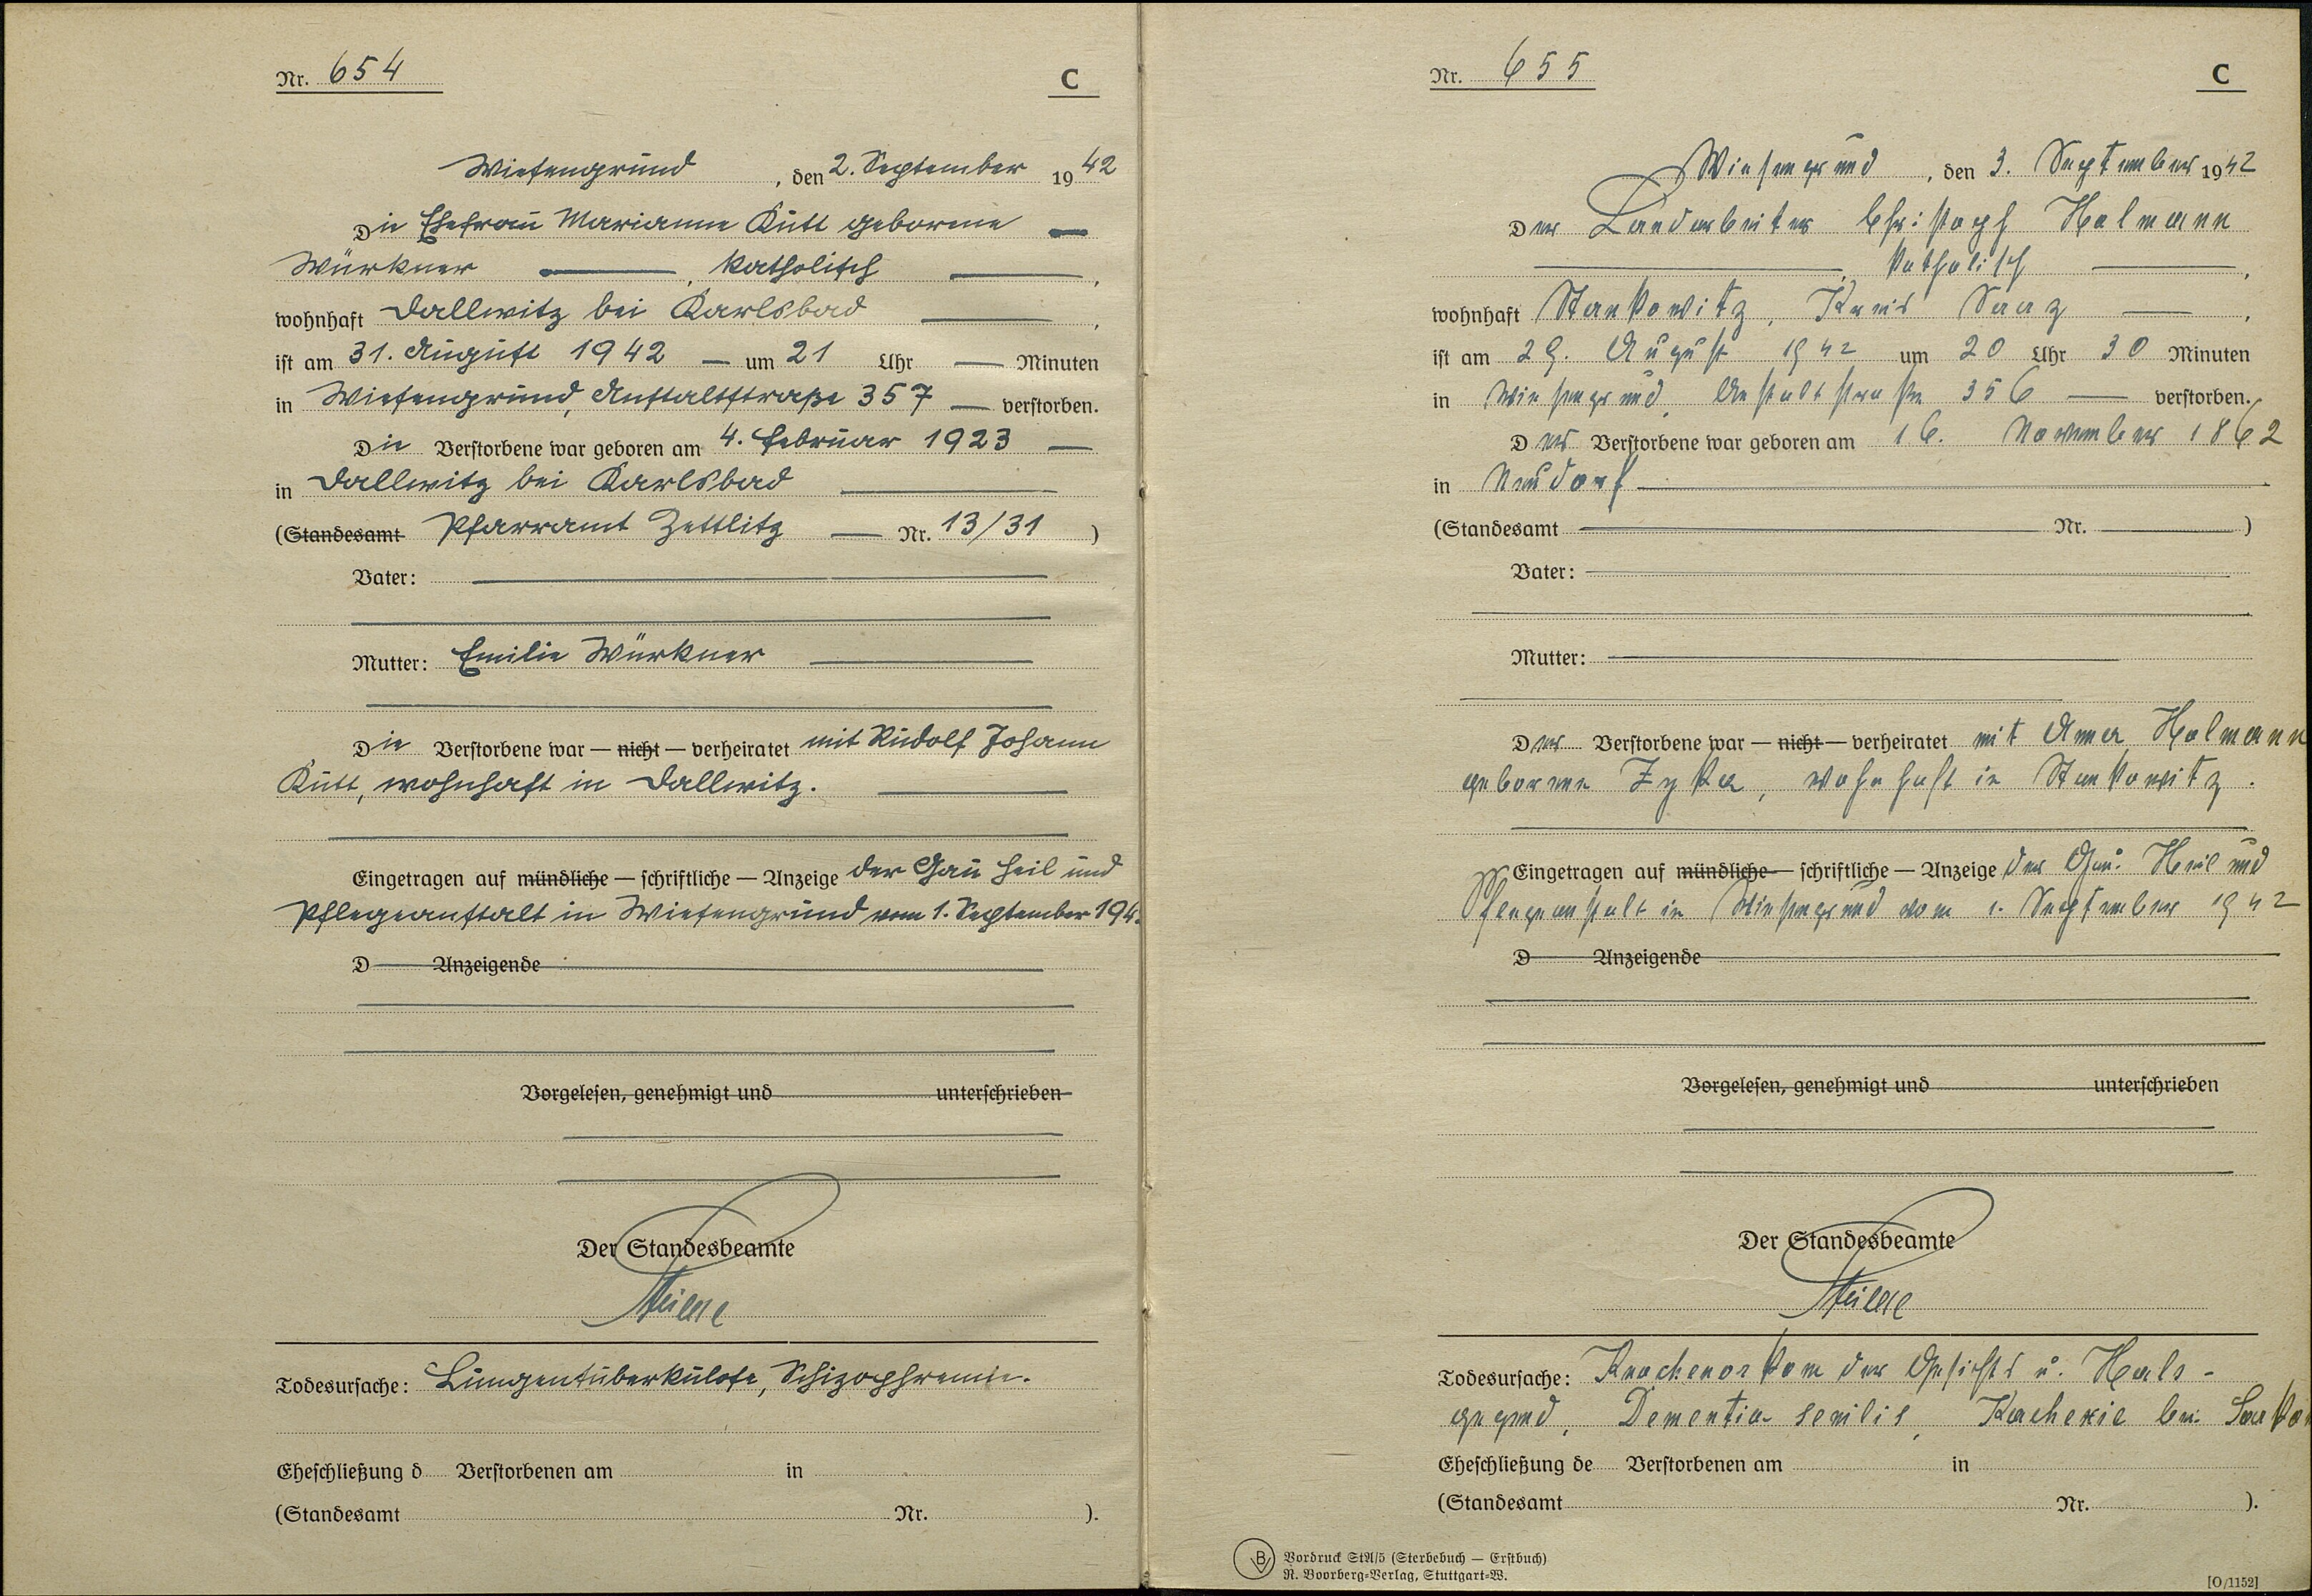 Nr. 654
C
Wiesengrund, den 2. September 1942
Die Ehefrau Marianne Kutt geborene —
Würkner —, katholisch —,
wohnhaft Dallwitz bei Karlsbad —,
ist am 31. August 1942 — um 21 Uhr — Minuten
in Wiesengrund, Anstaltstraße 357 — verstorben.
Die Verstorbene war geboren am 4. Februar 1923 —
in Dallwitz bei Karlsbad —
(Standesamt Pfarramt Zettlitz — Nr. 13/31)
Vater: —
Mutter: Emilie Würkner —
Die Verstorbene war — nicht — verheiratet mit Rudolf Johann
Kutt, wohnhaft in Dallwitz. —
Eingetragen auf mündliche — schriftliche — Anzeige der Gau Heil und
Pflegeanstalt in Wiesengrund vom 1. September 194
D Anzeigende
Vorgelesen, genehmigt und unterschrieben
Der Standesbeamte
Todesursache: Lungentuberkulose, Schizophrenie.
Eheschließung d Verstorbenen am in
(Standesamt Nr. ).
Nr. 655
C
Wiesengrund, den 3. September 1942
Der Landarbeiter Christoph Holmann
—, katholisch —,
wohnhaft Stankowitz, Kreis Saaz —,
ist am 29. August 1942 um 20 Uhr 30 Minuten
in Wiesengrund, Anstaltstraße 356 — verstorben.
Der Verstorbene war geboren am 16. November 1862
in Neudorf —
(Standesamt — Nr. —)
Vater: —
Mutter: —
Der Verstorbene war — nicht — verheiratet mit Anna Holmann
geborene Zyka, wohnhaft in Stankowitz.
Eingetragen auf mündliche — schriftliche — Anzeige der Gau Heil und
Pflegeanstalt in Wiesengrund vom 1. September 1942
D Anzeigende
Vorgelesen, genehmigt und unterschrieben
Der Standesbeamte
Todesursache: der Gesichts u. Hals-
gegend, Dementia senilis, Kachexie bei
Eheschließung de Verstorbenen am in
(Standesamt Nr. ).
B Vordruck StA/5 (Sterbebuch — Erstbuch)
R. Boorberg-Verlag, Stuttgart-W.
[O/1152]